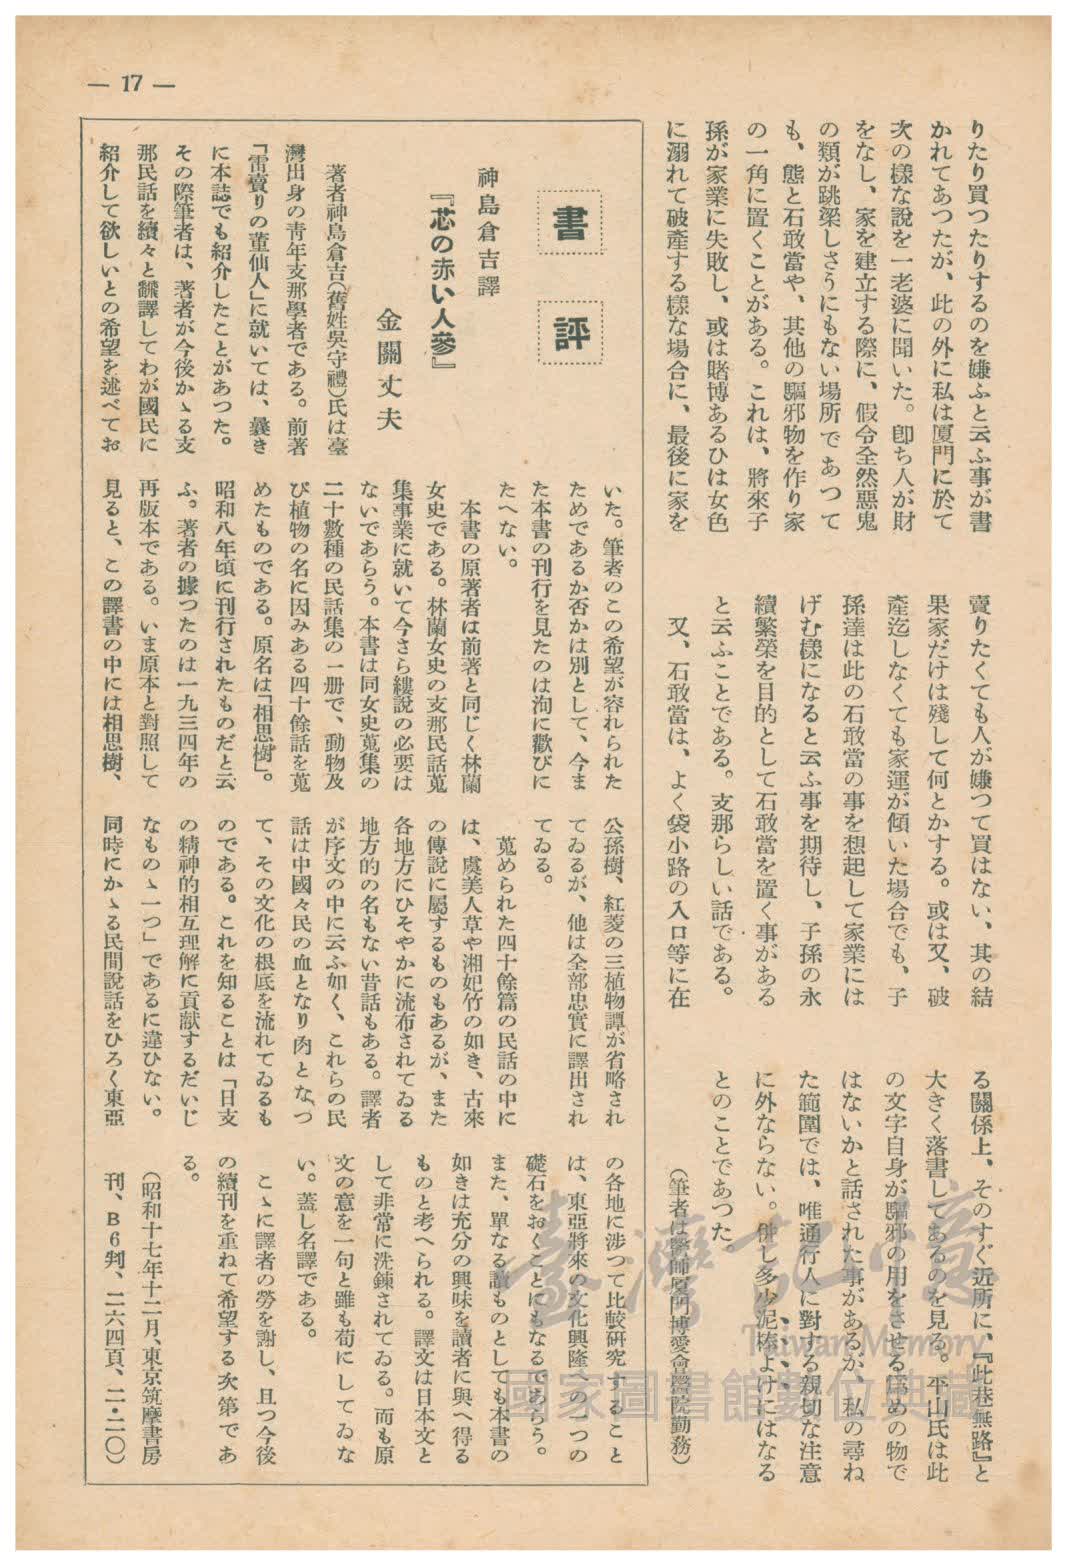 — 17 —
りたり買つたりするのを嫌ふと云ふ事が書
かれてあつたが、此の外に私は厦門に於て
次の樣な說を一老婆に聞いた。卽ち人が財
をなし、家を建立する際に、假令全然惡鬼
の類が跳梁しさうにもない場所であつて
も、態と石敢當や、其他の驅邪物を作り家
の一角に置くことがある。これは、將來子
孫が家業に失敗し、或は賭博あるひは女色
に溺れて破產する樣な場合に、最後に家を
賣りたくても人が嫌つて買はない、其の結
果家だけは殘して何とかする。或は又、破
產迄しなくても家運が傾いた場合でも、子
孫達は此の石敢當の事を想起して家業には
げむ樣になると云ふ事を期待し、子孫の永
續繁榮を目的として石敢當を置く事がある
と云ふことである。支那らしい話である。
又、石敢當は、よく袋小路の入口等に在
る關係上、そのすぐ近所に、『此巷無路』と
大きく落書してあるのを見る。平山氏は此
の文字自身が驅邪の用をさせる爲めの物で
はないかと話された事があるが、私の尋ね
た範圍では、唯通行人に對する親切な注意
に外ならない。併し多少泥棒よけにはなる
とのことであつた
(筆者は醫師厦門博愛會醫院勤務)
書評
神島倉吉譯
『芯の赤い人參』
金關丈夫
著者神島倉吉(舊姓吳守禮)氏は臺
灣出身の靑年支那學者である。前著
「雷賣りの董仙人」に就いては、曩き
に本誌でも紹介したことがあつた。
その際筆者は、著者が今後かゝる支
那民話を續々と飜譯してわが國民に
紹介して欲しいとの希望を述べてお
いた。筆者のこの希望が容れられた
ためであるか否かは別として、今ま
た本書の刊行を見たのは洵に歡びに
たへない。
本書の原著者は前著と同じく林蘭
女史である。林蘭女史の支那民話蒐
集事業に就いて今さら縷說の必要は
ないであらう。本書は同女史蒐集の
二十數種の民話集の一册で、動物及
び植物の名に因みある四十餘話を蒐
めたものである。原名は「相思樹」。
昭和八年頃に刊行されたものだと云
ふ。著者の據つたのは一九三四年の
再版本である。いま原本と對照して
見ると、この譯書の中には相思樹、
公孫樹、紅菱の三植物譚が省略され
てゐるが、他は全部忠實に譯出され
てゐる。
蒐められた四十餘篇の民話の中に
は、虞美人草や湘妃竹の如き、古來
の傳說に屬するものもあるが、また
各地方にひそやかに流布されてゐる
地方的の名もない昔話もある。譯者
が序文の中に云ふ如く、これらの民
話は中國々民の血となり肉となつ
て、その文化の根底を流れてゐるも
のである。これを知ることは「日支
の精神的相互理解に貢献するだいじ
なものゝ一つ」であるに違ひない。
同時にかゝる民間說話をひろく東亞
の各地に涉つて比較硏究すること
は、東亞將來の文化興隆への一つの
礎石をおくことにもなるであらう。
また、單なる讀ものとしても本書の
如きは充分の興味を讀者に與へ得る
ものと考へられる。譯文は日本文と
して非常に洗鍊されてゐる。而も原
文の意を一句と雖も苟にしてゐな
い。蓋し名譯である。
こゝに譯者の勞を謝し、且つ今後
の續刊を重ねて希望する次第であ
る。
(昭和十七年十二月、東京筑摩書房
刊、B6判、二六四頁、二・二〇)
臺灣記憶
Taiwan Memory
國家圖書館數位典藏